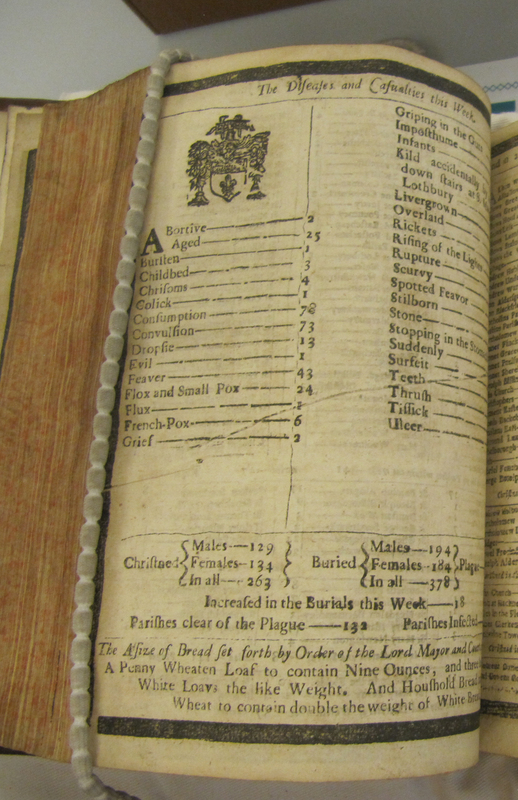 The Diseases and Casualties this Week.
ABortive 2
Aged 25
Bursten 1
Childbed 3
Chrisoms 4
Colick 1
Consumption 78
Convulsion 73
Dropsie 13
Evil 1
Feaver 43
Flox and Small Pox 24
Flux 1
French-Pox 6
Grief 2
Griping in the Guts
Imposthume
Infants
Kild accidentally
down stairs at
Lothbury
Livergrown
Overlaid
Rickets
Rising of the Lights
Rupture
Scurvy
Spotted Feavor
Stilborn
Stone
Stopping in the Stom
Suddenly
Surfeit
Teeth
Thrush
Tissick
Ulcer
Christned { Males 129 Females 134 In all 263 } Buried { Males 194 Females 184 In all 378 } Plague
Increased in the Burials this Week 18
Parishes clear of the Plague 132 Parishes Infected
The Assize of Bread set forth by Order of the Lord Major and Court
A Penny Wheaten Loaf to contain Nine Ounces, and three
White Loavs the like Weight. And Houshold Bread
Wheat to contain double the weight of White Bread